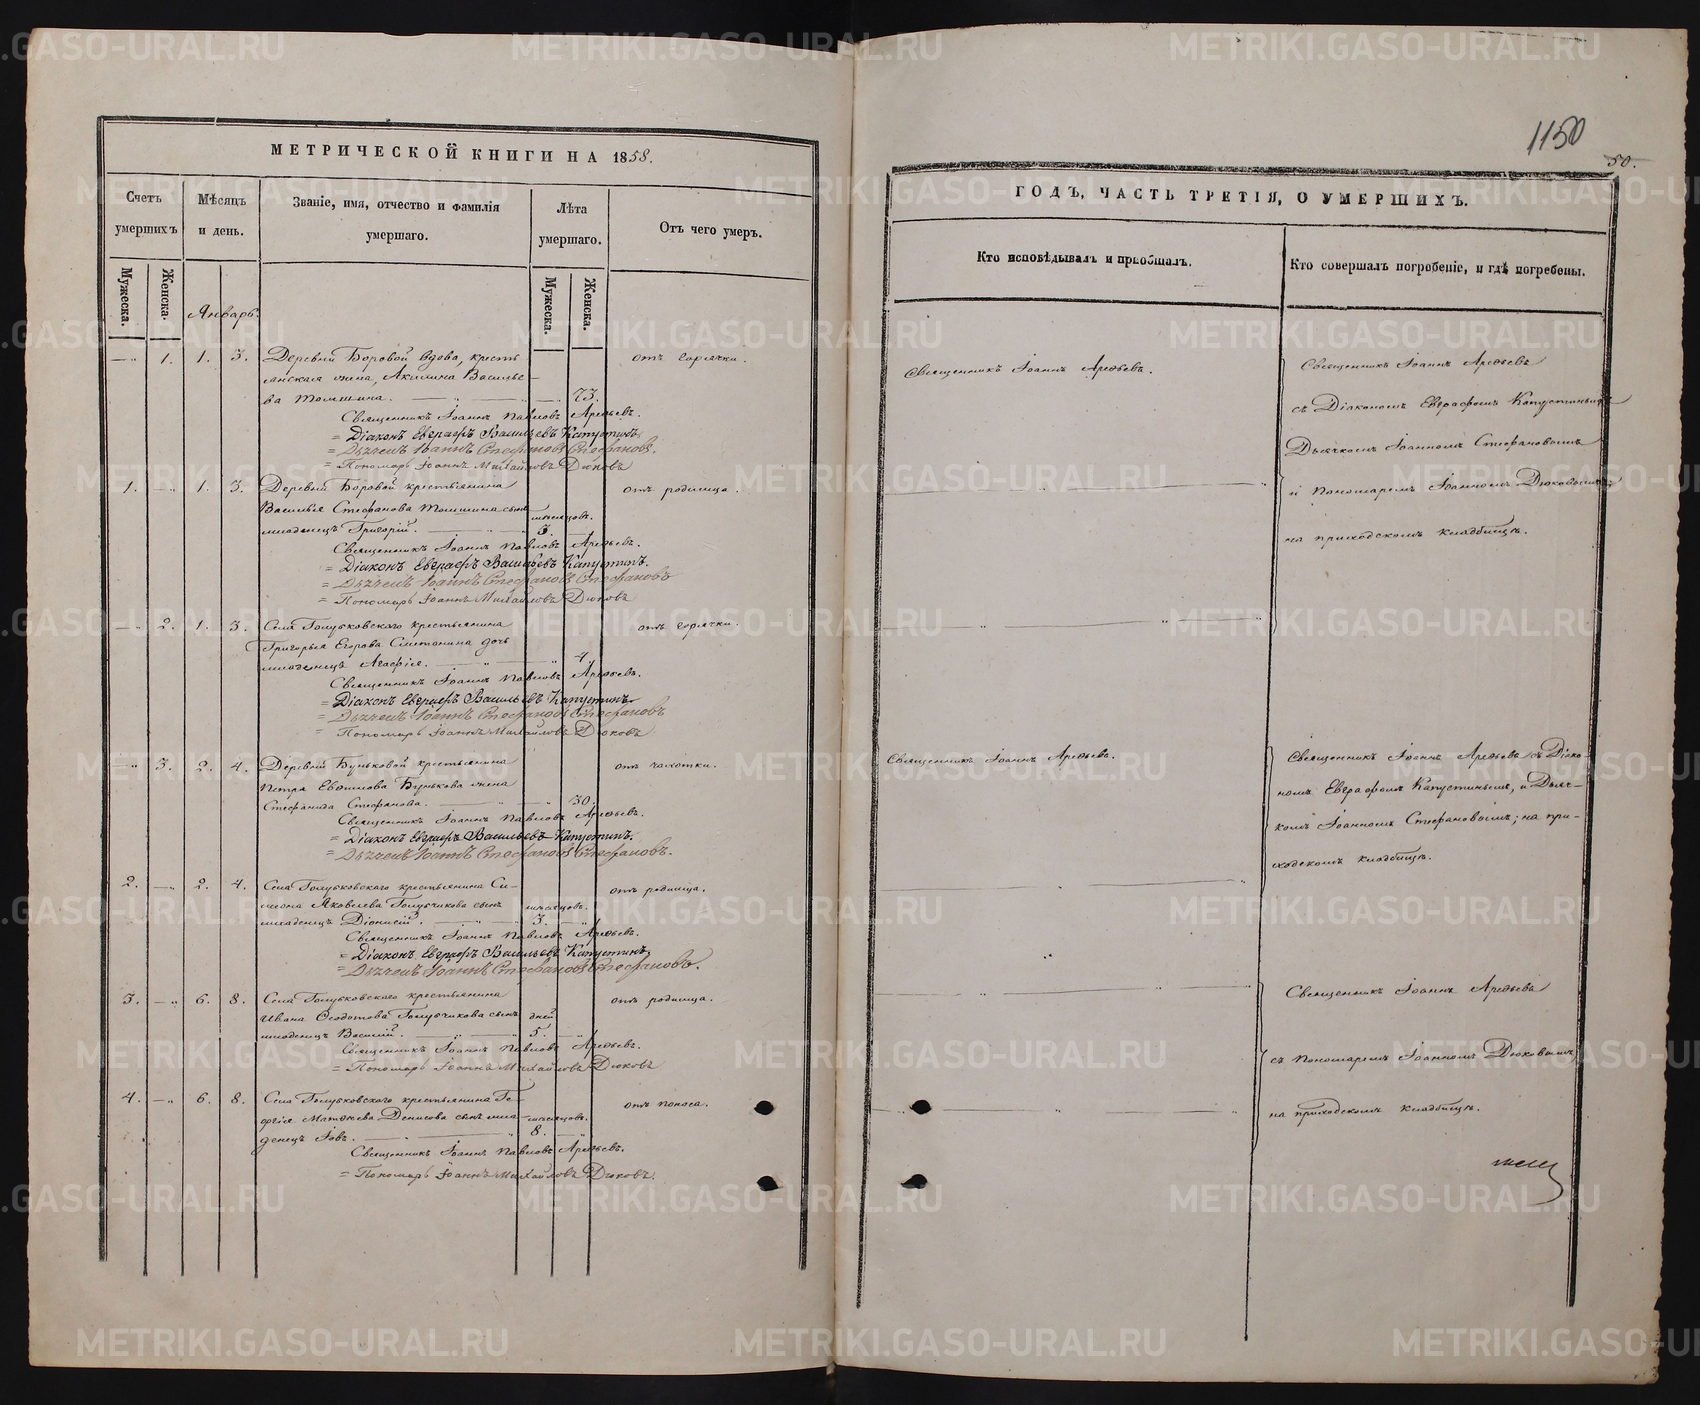 МЕТРИЧЕСКОЙ КНИГИ НА 1858.
Счетъ умершихъ
Мѣсяцъ и день.
Званіе, имя, отчество и фамилія умершаго.
Лѣта умершаго.
Отъ чего умеръ.
Мужеска.
Женска.
Мужеска.
Женска.
Январь.
— „ 1. 1. 3. Деревни Боровой вдова, кресть- отъ горячки.
янская жена, Акилина Василье-
ва Томшина. 73.
Священникъ Іоаннъ Павловъ Арефьевъ.
= Діаконъ Евграфъ Васильевъ Капустинъ.
= Дьячекъ Іоаннъ Стефановъ Стефановъ.
= Пономарь Іоаннъ Михайловъ Дюковъ
1. — „ 1. 3. Деревни Боровой крестьянина отъ родимца.
Василья Стефанова Томшина сынъ мѣсяцовъ.
младенецъ Григорій. 3.
Священникъ Іоаннъ Павловъ Арефьевъ.
= Діаконъ Евграфъ Васильевъ Капустинъ.
= Дьячекъ Іоаннъ Стефановъ Стефановъ
= Пономарь Іоаннъ Михайловъ Дюковъ
— „ 2. 1. 3. Села Голубковского крестьянина отъ горячки.
Григорья Егорова Сметанина дочь
младенецъ Агафія. 4.
Священникъ Іоаннъ Павловъ Арефьевъ.
= Діаконъ Евграфъ Васильевъ Капустинъ
= Дьячекъ Іоаннъ Стефановъ Стефановъ
= Пономарь Іоаннъ Михайловъ Дюковъ
— „ 3. 2. 4. Деревни Буньковой крестьянина отъ чахотки.
Петра Евфимова Бунькова жена
Стефанида Стефанова. 30.
Священникъ Іоаннъ Павловъ Арефьевъ.
= Діаконъ Евграфъ Васильевъ Капустинъ.
= Дьячекъ Іоаннъ Стефановъ Стефановъ.
2. — „ 2. 4. Села Голубковского крестьянина Си- отъ родимца.
меона Яковлева Голубчикова сынъ мѣсяцовъ.
младенецъ Діонисій. 3.
Священникъ Іоаннъ Павловъ Арефьевъ.
= Діаконъ Евграфъ Васильевъ Капустинъ
= Дьячекъ Іоаннъ Стефановъ Стефановъ.
3. — „ 6. 8. Села Голубковского крестьянина отъ родимца.
Ивана Ѳеодотова Голубчикова сынъ дней
младенецъ Василій. 5.
Священникъ Іоаннъ Павловъ Арефьевъ.
= Пономарь Іоаннъ Михайловъ Дюковъ
4. — „ 6. 8. Села Голубковского крестьянина Ге- отъ поноса.
оргія Матвѣева Денисова сынъ мла- мѣсяцовъ.
денецъ Іовъ. 8.
Священникъ Іоаннъ Павловъ Арефьевъ.
= Пономарь Іоаннъ Михайловъ Дюковъ.
1150
50.
ГОДЪ, ЧАСТЬ ТРЕТІЯ, О УМЕРШИХЪ.
Кто исповѣдывалъ и пріобщалъ.
Кто совершалъ погребеніе, и гдѣ погребены.
Священникъ Іоаннъ Арефьевъ.
Священникъ Іоаннъ Арефьевъ
съ Діакономъ Евграфомъ Капустинымъ
Дьячкомъ Іоанномъ Стефановымъ
и Пономаремъ Іоанномъ Дюковымъ;
на приходскомъ кладбищѣ.
Священникъ Іоаннъ Арефьевъ.
Священникъ Іоаннъ Арефьевъ съ Діако-
номъ Евграфомъ Капустинымъ, и Дьяч-
комъ Іоанномъ Стефановымъ; на при-
ходскомъ кладбищѣ.
Священникъ Іоаннъ Арефьевъ
съ Пономаремъ Іоанномъ Дюковымъ,
на приходскомъ кладбищѣ.
METRIKI.GASO-URAL.RU